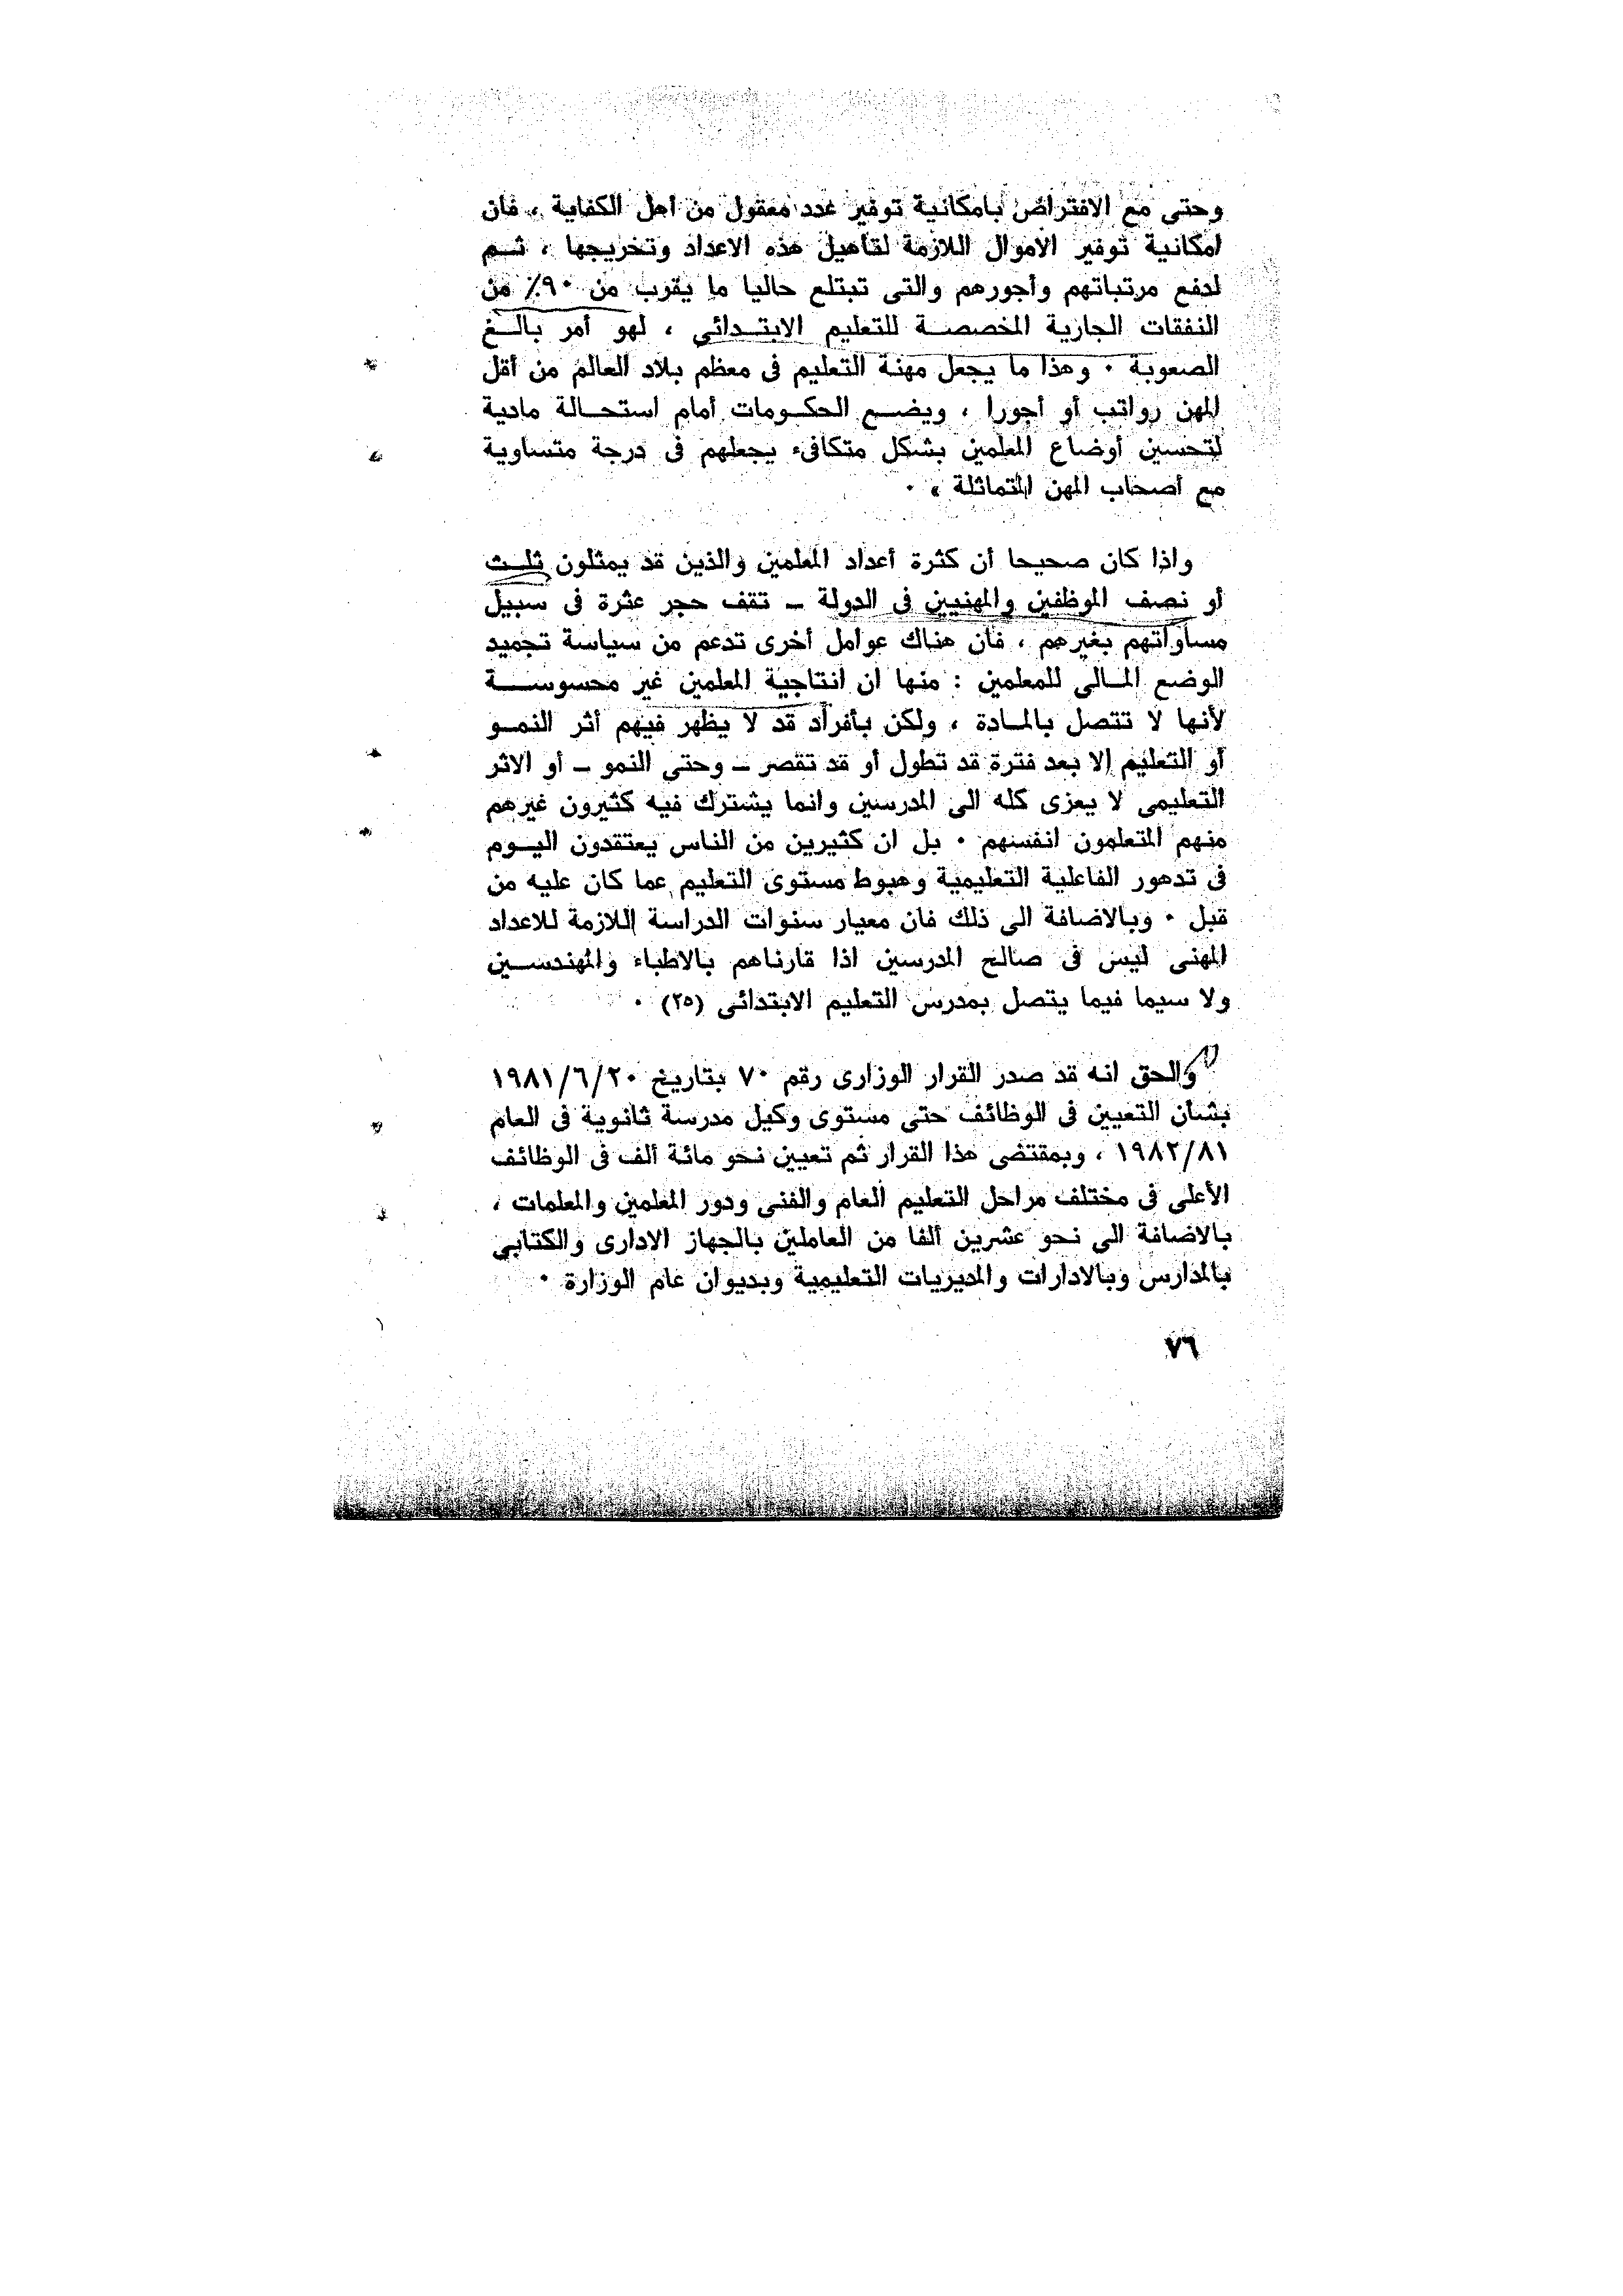 وحتى مع الافتراض بامكانية توفير عدد معقول من أهل الكفاية ، فان
امكانية توفير الاموال اللازمة لتأهيل هذه الاعداد وتخريجها ، ثم
لدفع مرتباتهم وأجورهم والتى تبتلع حاليا ما يقرب من ٩٠٪ من
النفقات الجارية المخصصة للتعليم الابتدائى ، لهو أمر بالغ
الصعوبة ٠ وهذا ما يجعل مهنة التعليم فى معظم بلاد العالم من أقل
المهن رواتب أو أجورا ، ويضع الحكومات أمام استحالة مادية
لتحسين أوضاع المعلمين بشكل متكافىء يجعلهم فى درجة متساوية
مع أصحاب المهن المتماثلة » ٠
واذا كان صحيحا أن كثرة أعداد المعلمين والذين قد يمثلون ثلث
أو نصف الموظفين والمهنيين فى الدولة ـ تقف حجر عثرة فى سبيل
مساواتهم بغيرهم ، فان هناك عوامل أخرى تدعم من سياسة تجميد
الوضع المالى للمعلمين : منها ان انتاجية المعلمين غير محسوسة
لأنها لا تتصل بالمادة ، ولكن بأفراد قد لا يظهر فيهم أثر النمو
أو التعليم إلا بعد فترة قد تطول أو قد تقصر ـ وحتى النمو ـ أو الاثر
التعليمى لا يعزى كله الى المدرسين وانما يشترك فيه كثيرون غيرهم
منهم المتعلمون انفسهم ٠ بل ان كثيرين من الناس يعتقدون اليوم
فى تدهور الفاعلية التعليمية وهبوط مستوى التعليم عما كان عليه من
قبل ٠ وبالاضافة الى ذلك فان معيار سنوات الدراسة اللازمة للاعداد
المهنى ليس فى صالح المدرسين اذا قارناهم بالاطباء والمهندسين
ولا سيما فيما يتصل بمدرس التعليم الابتدائى (٢٥) ٠
والحق انه قد صدر القرار الوزارى رقم ٧٠ بتاريخ ١٩٨١/٦/٢٠
بشأن التعيين فى الوظائف حتى مستوى وكيل مدرسة ثانوية فى العام
١٩٨٢/٨١ ، وبمقتضى هذا القرار ثم تعيين نحو مائة ألف فى الوظائف
الأعلى فى مختلف مراحل التعليم العام والفنى ودور المعلمين والمعلمات ،
بالاضافة الى نحو عشرين ألفا من العاملين بالجهاز الادارى والكتابى
بالمدارس وبالادارات والمديريات التعليمية وبديوان عام الوزارة ٠
٧٦